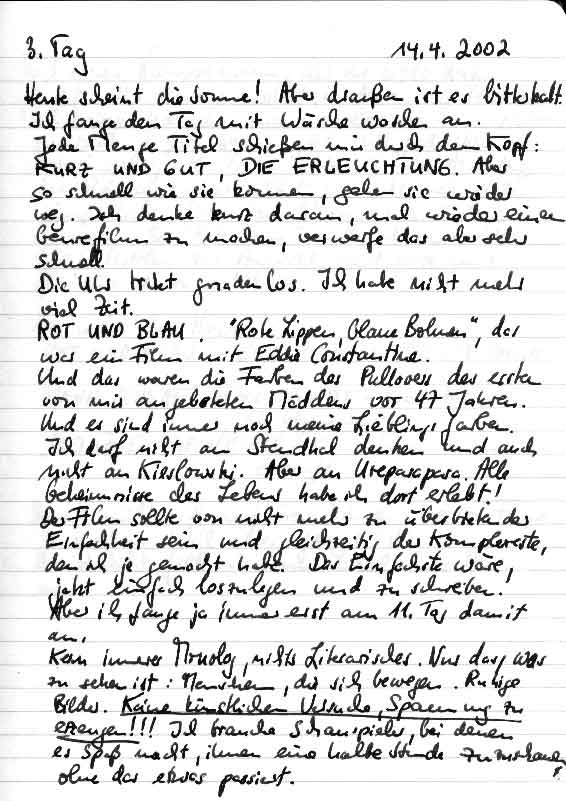 3. Tag 14.4.2002
Heute scheint die Sonne! Aber draußen ist es bitterkalt.
Ich fange den Tag mit Wäsche waschen an.
Jede Menge Titel schießen mir durch den Kopf:
KURZ UND GUT, DIE ERLEUCHTUNG. Aber
so schnell wie sie kommen, gehen sie wieder
weg. Ich denke kurz daran, mal wieder einen
schnell.
Die Uhr tickt gnadenlos. Ich habe nicht mehr
viel Zeit.
ROT UND BLAU. "Rote Lippen, blaue Bohnen", das
war ein Film mit Eddie Constantine.
Und das waren die Farben des Pullovers des ersten
von mir angebeteten Mädchens vor 47 Jahren.
Und es sind immer noch meine Lieblingsfarben.
Ich darf nicht an Stendhal denken und auch
nicht an Kieslowski. Aber an Ureparapara. Alle
Geheimnisse des Lebens habe ich dort erlebt!
Der Film sollte von nicht mehr zu überbietender
Einfachheit sein und gleichzeitig der Komplexeste,
den ich je gemacht habe. Das Einfachste wäre,
jetzt einfach loszulegen und zu schreiben.
Aber ich fange ja immer erst am 11. Tag damit
an.
Kein innerer Monolog, nichts Literarisches. Nur das, was
zu sehen ist: Menschen, die sich bewegen. Ruhige
Bilder. Keine künstlichen Versuche, Spannung zu
erzeugen!!! Ich brauche Schauspieler, bei denen
es Spaß macht, ihnen eine halbe Stunde zuzuschauen,
ohne das etwas passiert.